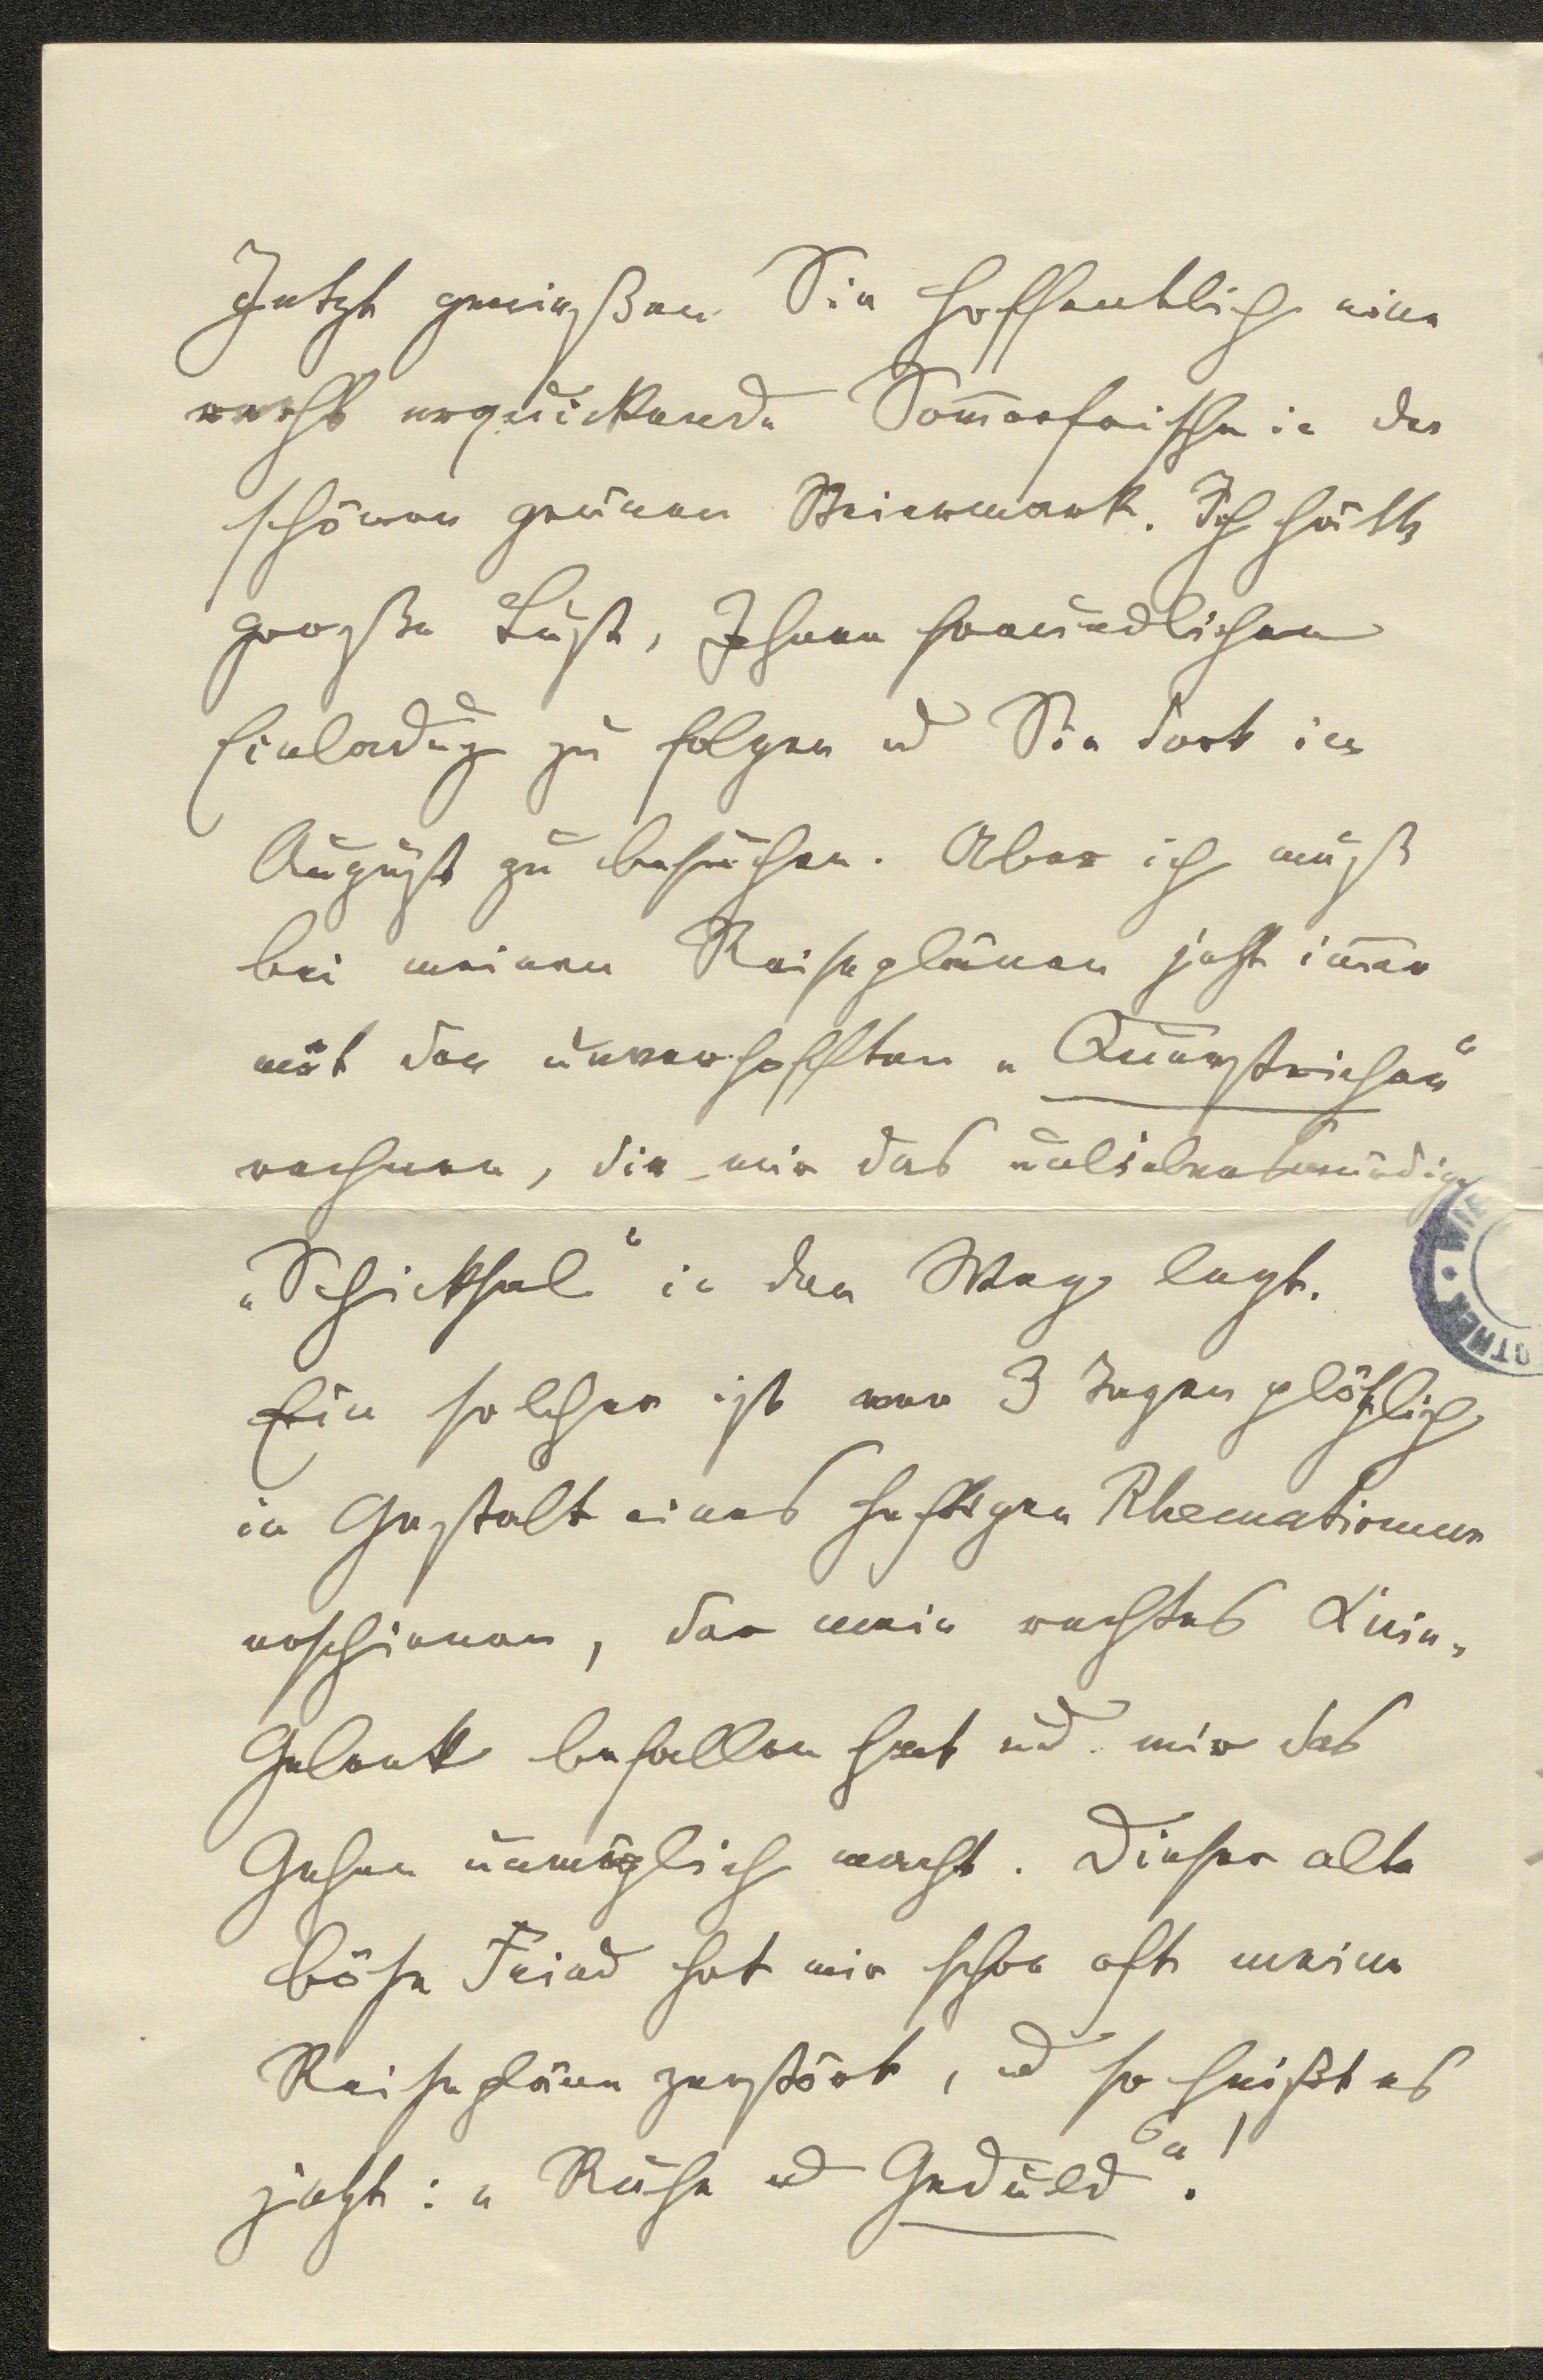 Jetzt genießen Sie hoffentlich eine
recht erquickende Som̅erfrische in der
schönen grünen Steiermark. Ich hätte
große Lust, Ihrer freundlichen
Einladung zu folgen ud Sie dort im
August zu besuchen. Aber ich muß
bei meinen Reiseplänen jetzt im̅er
mit den unverhofften „Querstrichen“
rechnen, die mir das unliebenswürdige
„Schicksal“ in den Weg legt.
Ein solcher ist vor 3 Tagen plötzlich
in Gestalt eines heftigen Rheumatismus
erschienen, der mein rechtes Knie-
Gelenk befallen hat ud. mir das
Gehen unmöglich macht. Dieser alte
böse Feind hat mir schon oft meine
Reisepläne zerstört, ud so heißt es
jetzt: „Ruhe ud Geduld“!
WIE
OTHEK